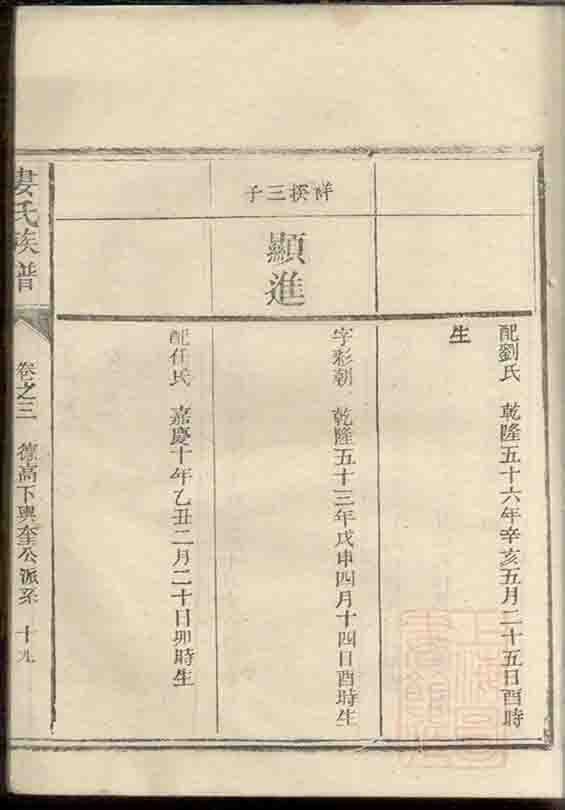 配劉氏 乾隆五十六年辛亥五月二十五日酉時
生
祥撰三子
顯進
字彩朝 乾隆五十三年戊申四月十四日酉時生
配任氏 嘉慶十年乙丑二月二十日卯時生
婁氏族譜 卷之三 德高下興奎公派系 十九